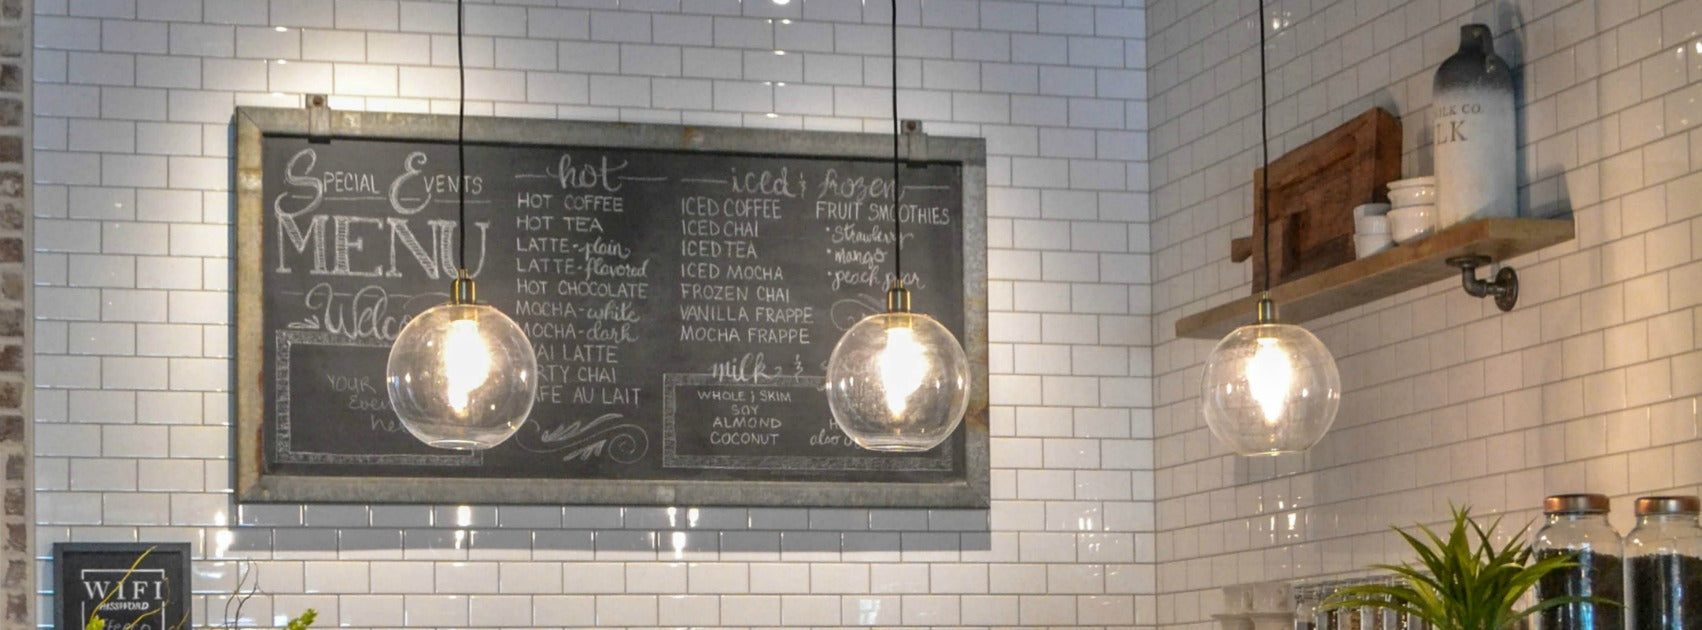 Special Events
MENU
YOUR
hot
HOT COFFEE
HOT TEA
LATTE-plain
LATTE-flavored
HOT CHOCOLATE
MOCHA-white
MOCHA-dark
LATTE
CHAI
AU LAIT
iced & frozen
ICED COFFEE
ICED CHAI
ICED TEA
ICED MOCHA
FROZEN CHAI
VANILLA FRAPPE
MOCHA FRAPPE
FRUIT SMOOTHIES
•strawberry
•mango
•peach pear
milk &
WHOLE & SKIM
SOY
ALMOND
COCONUT
also
WIFI
PASSWORD
CO.